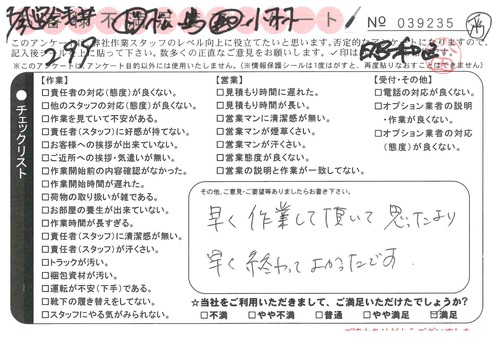 No 039235
このアンケートは弊社作業スタッフのレベル向上に役立てたいと思います。否定的なアンケートになりますので、
※このアンケートはアンケート目的以外には使用いたしません。(※情報保護シールは1度はがすと、再度貼りなおすことはできません)
チェックリスト
【作業】
□責任者の対応(態度)が良くない。
□他のスタッフの対応(態度)が良くない。
□作業を見ていて不安がある。
□責任者(スタッフ)に好感が持てない。
□お客様への挨拶が出来ていない。
□ご近所への挨拶・気遣いが無い。
□作業開始前の内容確認がなかった。
□作業開始時間が遅れた。
□荷物の取り扱いが雑である。
□お部屋の養生が出来ていない。
□作業時間が長すぎる。
□責任者(スタッフ)に清潔感が無い。
□責任者(スタッフ)が汗くさい。
□トラックが汚い。
□梱包資材が汚い。
□運転が不安(下手)である。
□靴下の履き替えをしてない。
□スタッフにやる気がみられない。
【営業】
□見積もり時間に遅れた。
□見積もり時間が長い。
□営業マンに清潔感が無い。
□営業マンが煙草くさい。
□営業マンが汗くさい。
□営業態度が良くない。
□営業の説明と作業が一致してない。
【受付・その他】
□電話の対応が良くない。
□オプション業者の説明
・作業が良くない。
□オプション業者の対応
(態度)が良くない。
その他、ご意見・ご要望等ありましたらお書き下さい。
早く作業して頂いて思ったより
早く終わってよかったです
☆当社をご利用いただきまして、ご満足いただけたでしょうか?
□不満 □やや不満 □普通 □やや満足 ☑満足